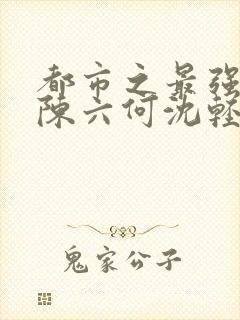 都市之最强
陈六何沈轻
鬼家公子